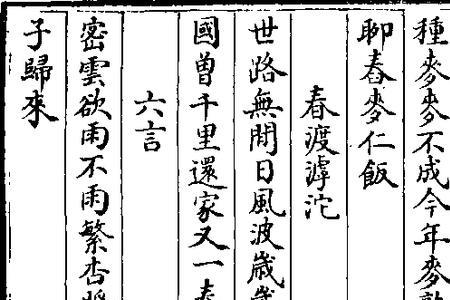 種麥麥不成今年麥
聊舂麥仁飯
春渡滹沱
世路無閒日風波歲歲
國曾千里還家又一春
六言
密雲欲雨不雨繁杏將
子歸來